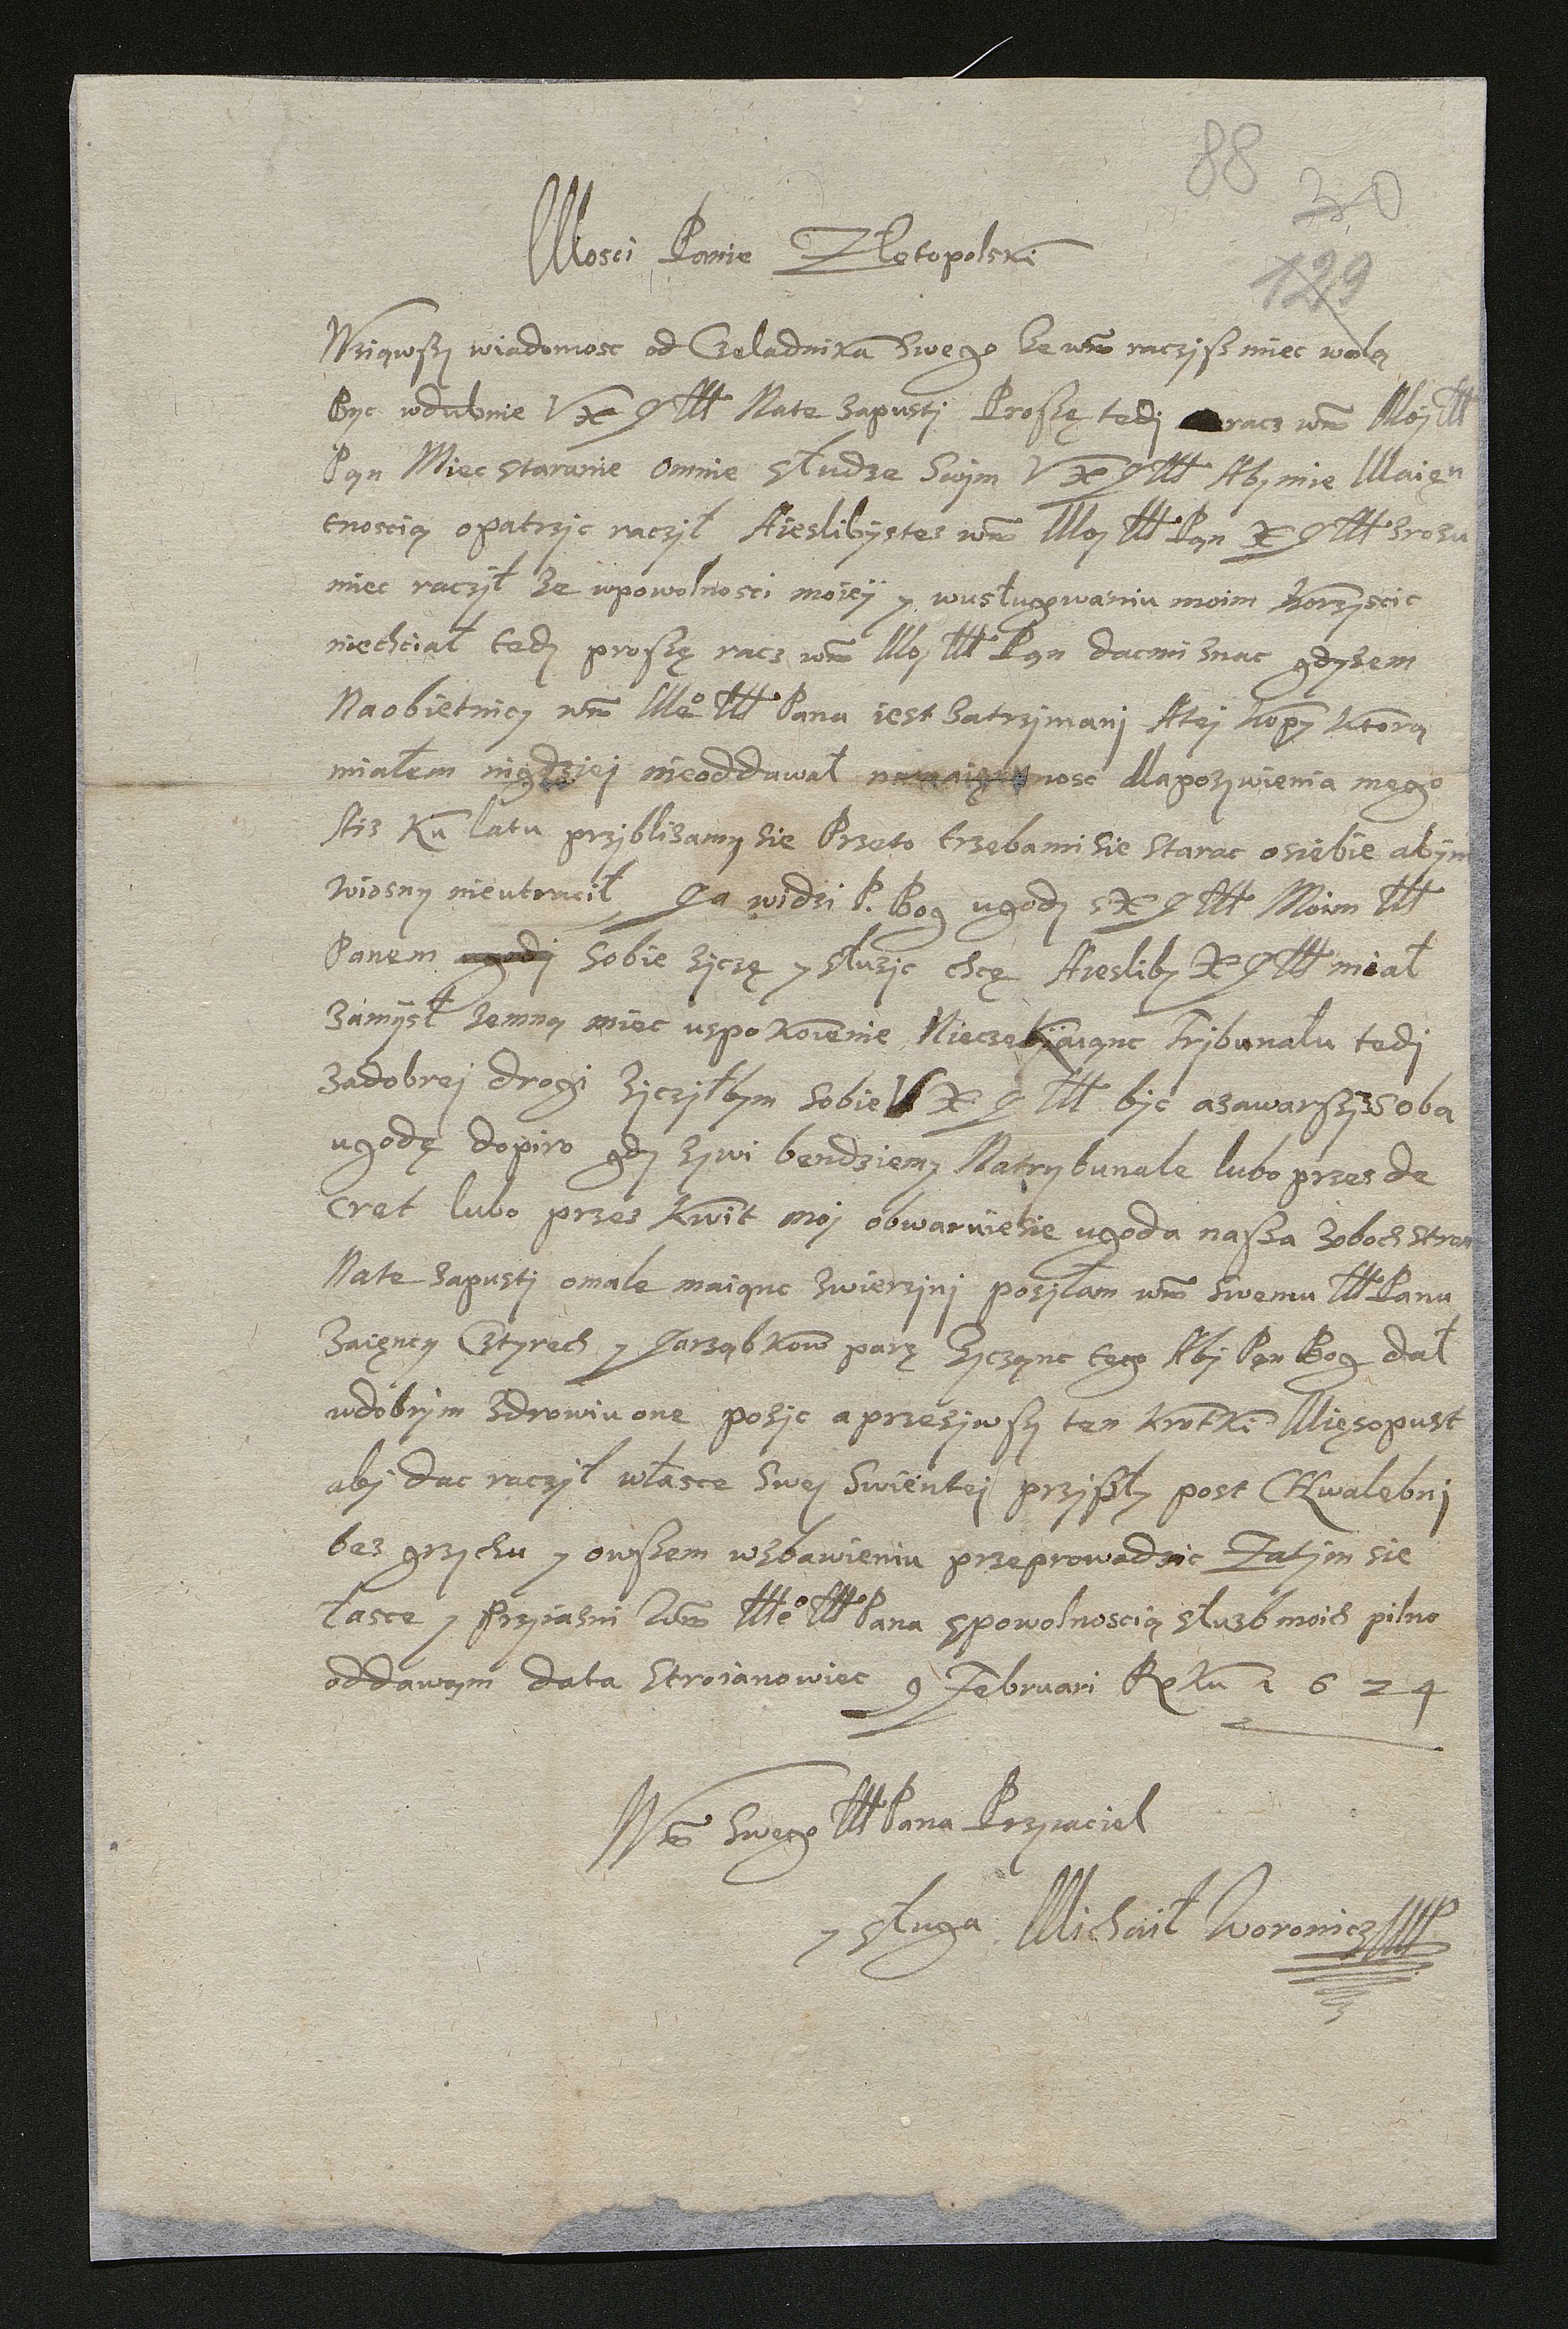 88
30
129
Mosci Panie Złotopolski
Wziąwszy wiadomosc od Czeladnika Swego ze wm raczysz miec wolą
Byc wdubnie V X J M Nate zapusty Proszę tedj racz wm Moj M
Pąn Miec staranie omnie słudze Swym V X J M Aby mie Maięn
tnoscią opatrzyc raczył Aieslibystez wm Moj M Pąn X J M zrozu
miec raczył ze wpowolnosci moiey y wusługowaniu moim korzyscic
niechciał tedj proszę racz wm Moj M Pąn dacmi znac gdyzem
Naobietnicy wm Me° M Pana iest zatrzymanj Atej kopy ktorą
miałem nigdziej nieoddawał namaięnnosc dlapozywienia mego
Asz Ku latu przyblizamy sie Przeto trzebami sie starac osiebie abym
Wiosny nieutracił Ja widzi P. Bog ugody s X J M Moim M
Panem ugodj sobie zyczę y słuzyc chcę Aiesliby X J M miał
zamysł zemną miec uspokoienie Nieczekaiąnc Trybunału tedj
zadobrej drogi zyczyłbym sobie V X J M byc azawarszy zSoba
ugodę dopiro gdy zywi bendziemy Natrybunale lubo przes de
cret lubo przes kwit moj obwaruiesie ugoda nasza zoboch stron
Nate zapusty omale maiąnc zwierzynj posyłam wm swemu M Panu
Zaięncy Cztyrech y Jarząbkow parę Zycząnc tego Aby Pąn Bog dał
wdobrym zdrowiu one pozyc aprzezywszy ten krotki Mięsopust
aby dac raczył własce Swej Swientej przyszły post Chwalebnj
bez grzychu y owszem wzbawieniu przeprowadzic Zatym sie
łasce y Przyiazni Wm Me° M Pana spowolnoscią słuzb moich pilno
oddawam data Stroianowiec 9 Februari Roku 1 6 2 4
Wm Swego M Pana Przyiaciel
y sługa Michaił Woronicz